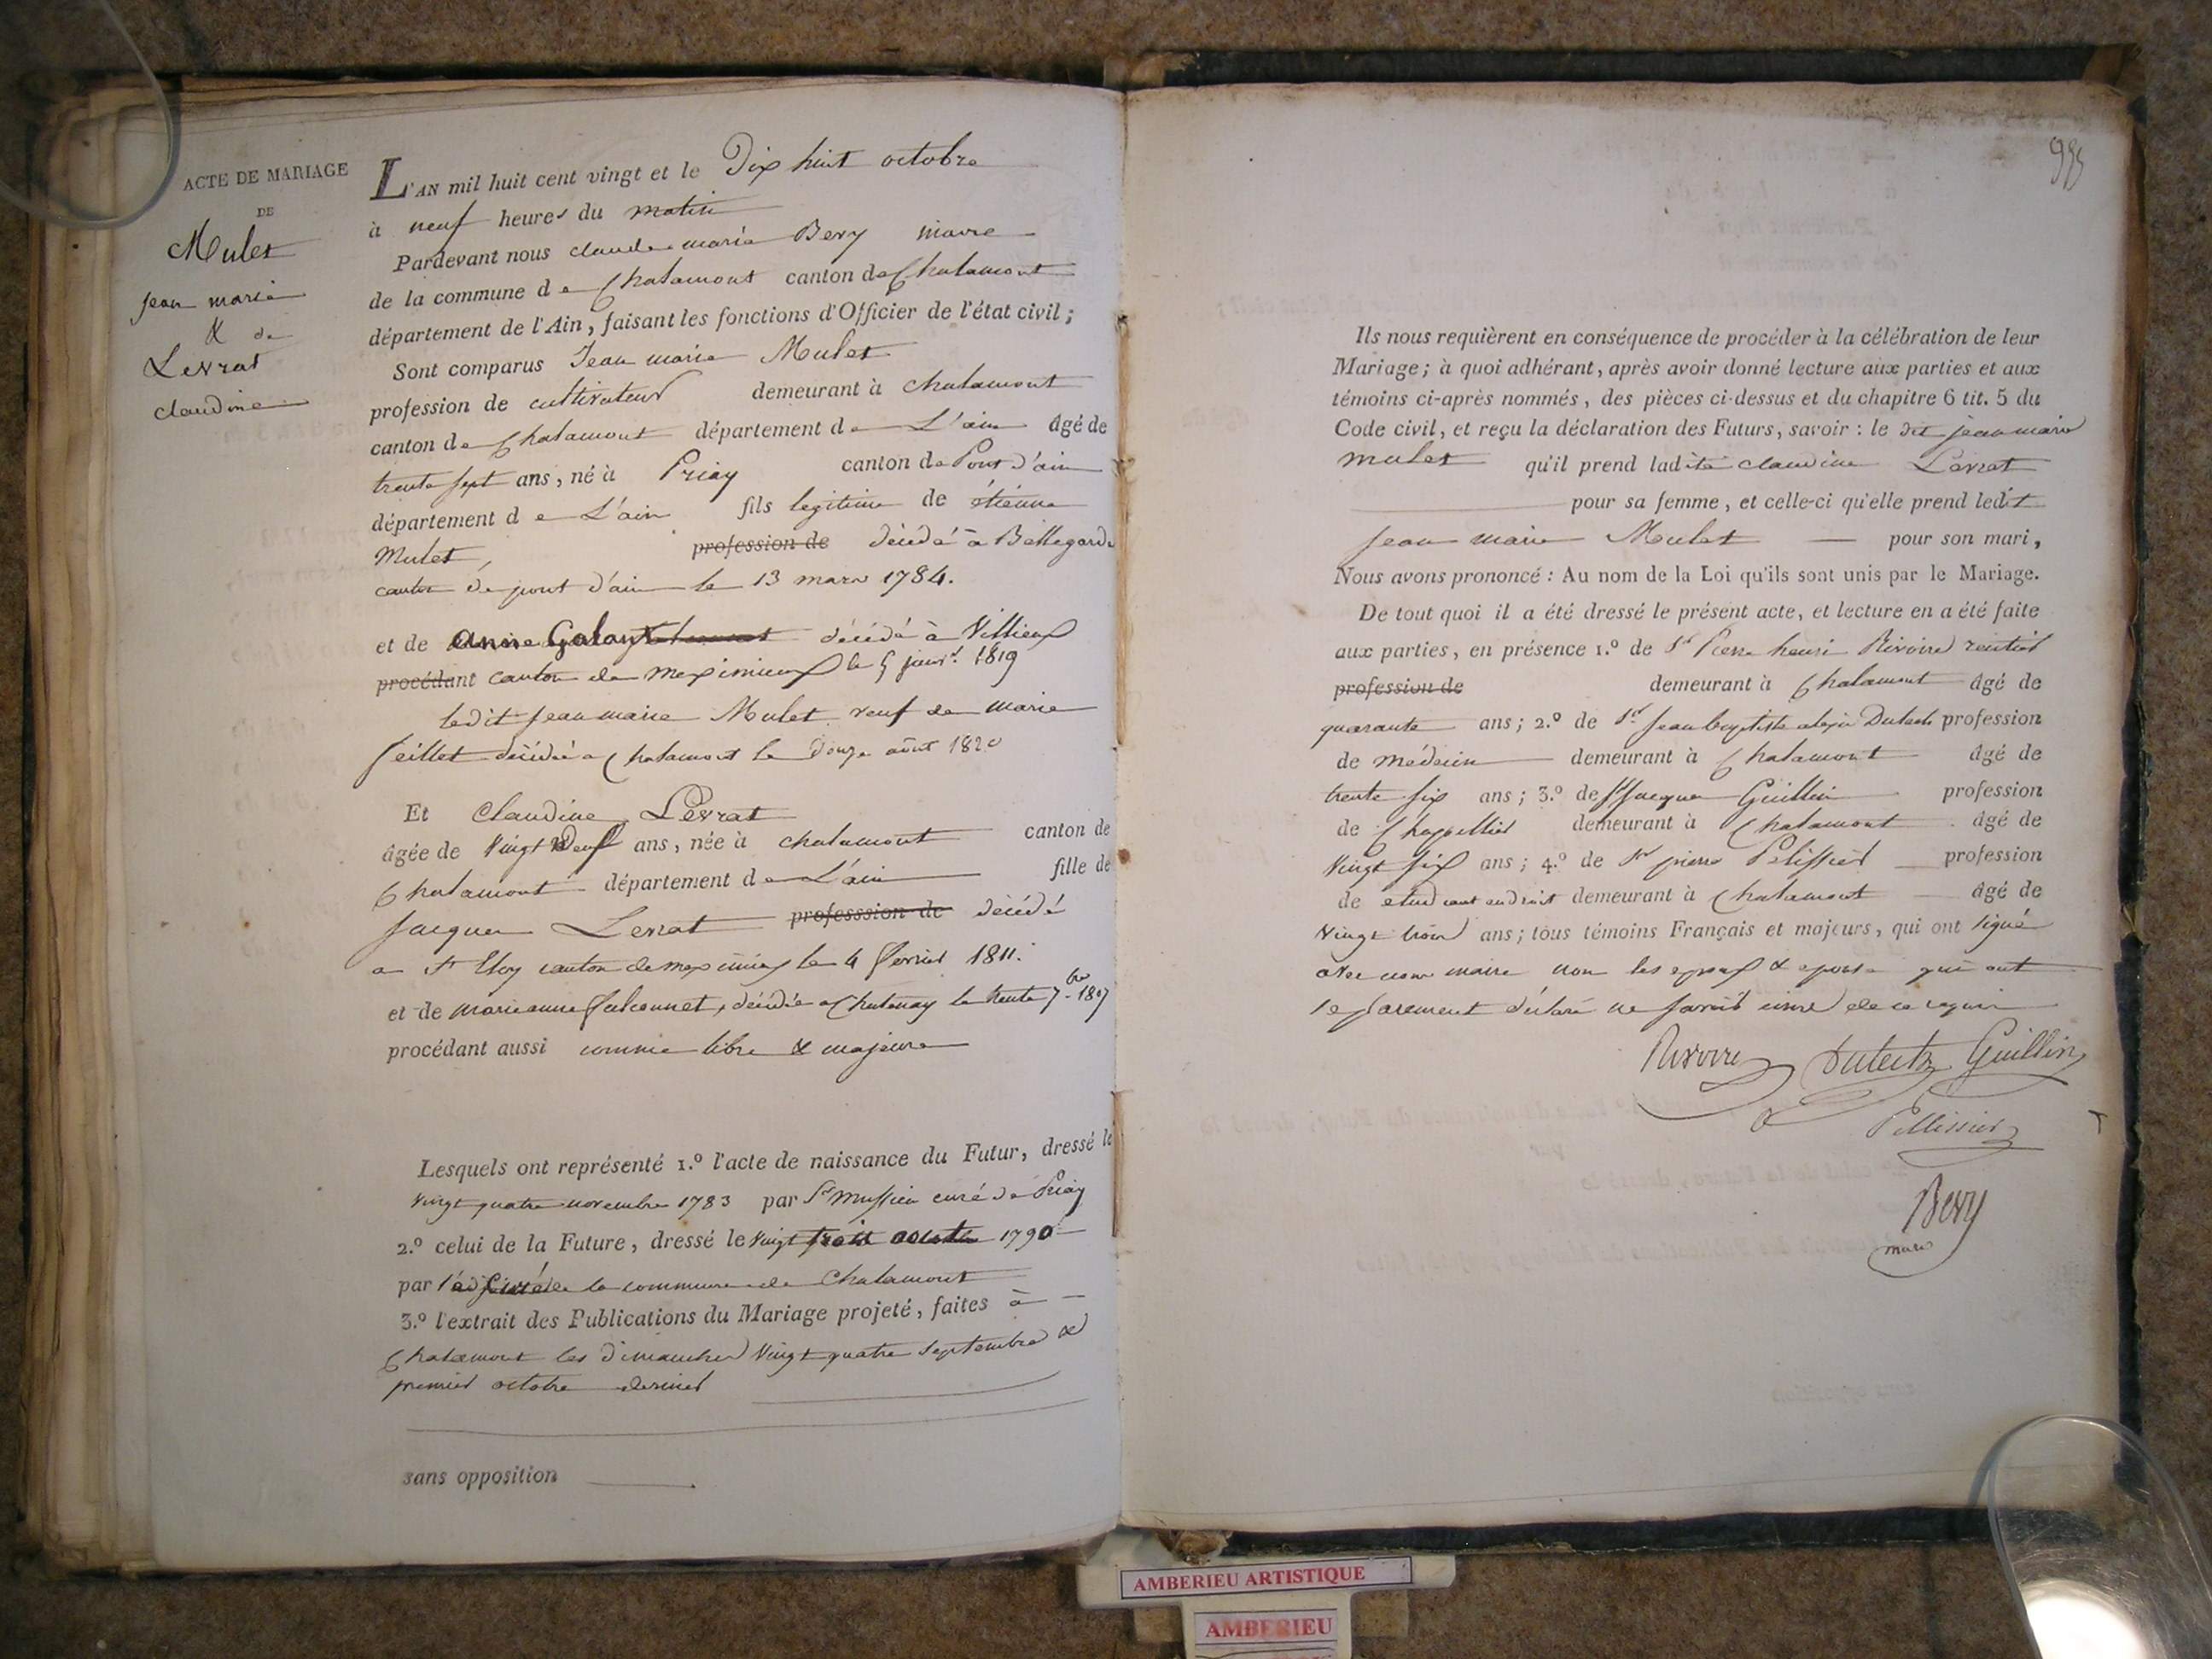 ACTE DE MARIAGE
DE
Mulet
jean marie
& de
Levrat
claudine
L'AN mil huit cent vingt et le Dix huit octobre
à neuf heures du matin
Pardevant nous claude marie Bevy maire
de la commune de Chalamont canton de Chalamont
département de l'Ain, faisant les fonctions d'Officier de l'état civil;
Sont comparus Jean marie Mulet
profession de cultivateur demeurant à chalamont
canton de Chalamont département de L'ain âgé de
trente sept ans, né à Priay canton de Pont d'ain
département de L'ain fils legitime de étienne
Mulet, profession de décédé à Bellegarde
canton de pont d'ain le 13 mars 1784.
et de anne Galant décédé à Villieux
procédant canton de meximieux le 5 janvr. 1819
ledit jean marie Mulet veuf de marie
feillet décédée a Chalamont le Douze août 1820
Et Claudine Levrat
âgée de Vingt Neuf ans, née à chalamont canton de
Chalamont département de L'ain fille de
Jacques Levrat professsion de décédé
a St Eloy canton de meximieux le 4 fevrier 1811.
et de marieanne falconnet, décédée a Chatenay le trente 7bre 1807
procédant aussi comme libre & majeure
Lesquels ont représenté 1.º l'acte de naissance du Futur, dressé le
vingt quatre novembre 1783 par Sr curé de Priay
2.º celui de la Future, dressé le vingt trois 1790
par de la commune de Chalamont
3.º l'extrait des Publications du Mariage projeté, faites à
Chalamont les dimanches Vingt quatre septembre &
premier octobre dernier
sans opposition
995
Ils nous requièrent en conséquence de procéder à la célébration de leur
Mariage; à quoi adhérant, après avoir donné lecture aux parties et aux
témoins ci-après nommés, des pièces ci-dessus et du chapitre 6 tit. 5 du
Code civil, et reçu la déclaration des Futurs, savoir: le dit jean marie
mulet qu'il prend ladite claudine Levrat
pour sa femme, et celle-ci qu'elle prend ledit
Jean marie Mulet pour son mari,
Nous avons prononcé: Au nom de la Loi qu'ils sont unis par le Mariage.
De tout quoi il a été dressé le présent acte, et lecture en a été faite
aux parties, en présence 1.º de Sr Pierre henri Rivoire rentier
profession de demeurant à Chalamont âgé de
quarante ans; 2.º de Sr Jean baptiste alexis profession
de médecin demeurant à Chalamont âgé de
trente six ans; 3.º de Sr Jacques Guillin profession
de Chappellier demeurant à Chalamont âgé de
Vingt six ans; 4.º de Sr pierre Pelissier profession
de etudiant en droit demeurant à Chalamont âgé de
Vingt trois ans; tous témoins Français et majeurs, qui ont signé
avec nous maire non les epoux & epouse qui ont
separement déclaré ne savoir de ce requis
Rivoire Guillin
Pellissier
Bevy
maire
AMBERIEU ARTISTIQUE
AMBERIEU